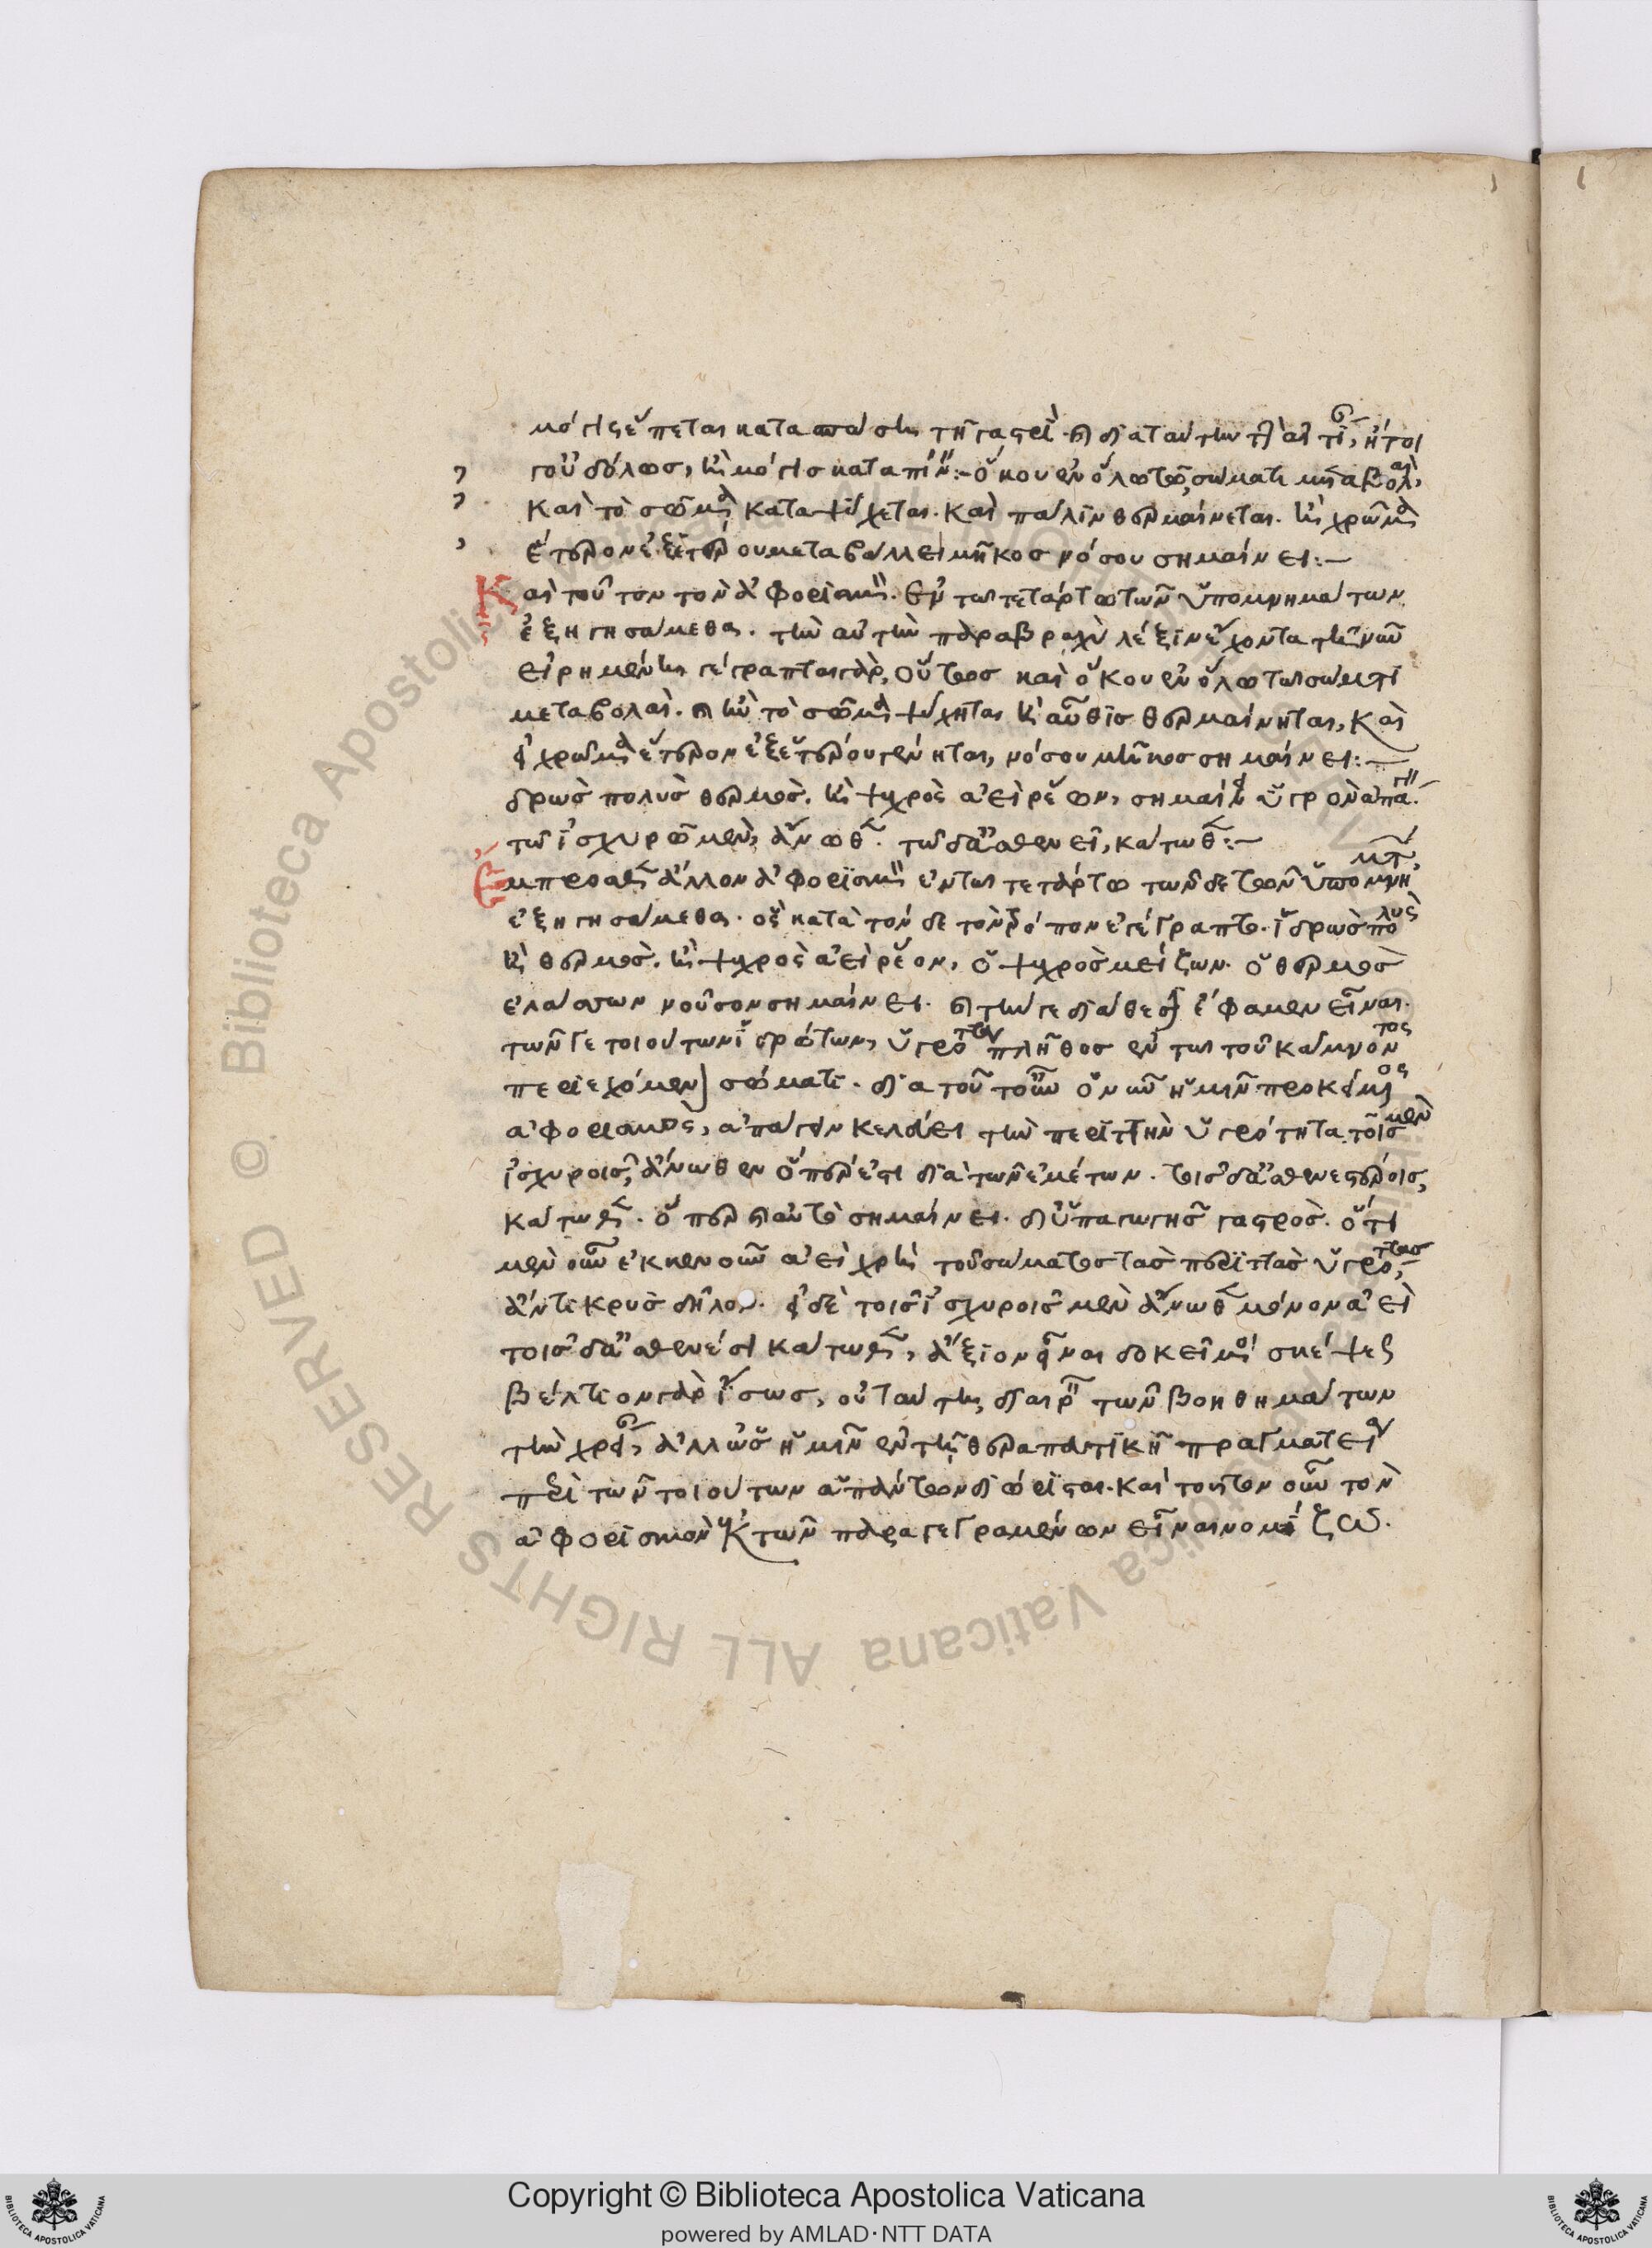 μόγις ἕπεται κατα πάσης τῆς γαστρὶ. καὶ διαταύτην τὴν αἰτί, ἤτοι
γοὐδόλωσ, καὶ μόγισ καταπίν:- ὅκου ἐν ὅλω τῶ σώματι μεταβολαὶ,
καὶ τὸ σῶμα καταψύχεται. καὶ πάλιν θερμαίνεται. καὶ χρῶμα
ἕτερον ἐξ ἑτέρου μεταβάλλει μῆκοσ νόσου σημαίνει:-
Καὶ τοῦτον τὸν ἀφορισμὸν. ἐν τῶ τετάρτω τῶν ὑπομνημάτων
ἐξηγησάμεθα. τὴν αὐτὴν παραβραχὺ λέξιν ἔχοντα τῆ νῦν
εἰρημένη γέγραπται γὰρ, οὕτωσ καὶ ὅκου ἐν ὅλω τῶ σώματι
μεταβολαὶ. καὶ ἢν τὸ σῶμα ψύχηται καὶ αὖθισ θερμαίνηται, καὶ
ἢ χρῶμα ἕτερον ἐξ ἑτέρου γένηται, νόσου μῆκοσ σημαίνει:-
δρωσ πολυσ θερμὸσ. καὶ ψυχρὸς ἀεὶ ῥέων, σημαίνει ὑγρὸν ἀπά.
τῶ ἰσχυρῶ μὲν, ἄνωθεν. τῶ δ' ἀσθενεῖ, κάτωθεν:-
Ἔμπροσθεν ἄλλον ἀφορισμὸν ἐν τῶ τετάρτω τῶνδε τῶν ὑπομνημάτ,
ἐξηγησάμεθα. ὃς κατὰ τόνδε τὸν τρόπον ἐγέγραπτο. ἱδρὼσ πολὺς
καὶ θερμὸσ. καὶ ψυχρὸς ἀεὶ ῥέον, ὁ ψυχρὸσ μείζων. ὁ θερμὸσ
ἐλάσσων νοῦσον σημαίνει. καὶ τήν γε διάθεσιν ἔφαμεν εἶναι.
τῶν γε τοιούτων ἱδρώτων, ὑγρότητων πλῆθοσ ἐν τῶ τοῦ κάμνοντος
περιεχόμενον σώματι. διὰ τοῦτ' οὖν ὁ νῦν ἡμῖν προκείμενος
ἀφορισμὸς, ἀπάγειν κελεύει τὴν περιττὴν ὑγρότητα τοῖσ μὲν
ἰσχυροῖσ, ἄνωθεν ὅπερ ἐστὶ διὰ τῶν ἐμέτων. τοισ δ' ἀσθενεστέροισ,
κάτωθεν. ὅπερ καὶ αὐτὸ σημαίνει. δι' ὑπαγωγῆσ γαστρὸσ. ὅτι
μὲν οὖν ἐκκενοῦν ἀεὶ χρὴ τοῦ σώματοσ τὰσ περιττὰσ ὑγρότητασ,
ἄντικρυσ δῆλον. εἰ δὲ τοῖσ ἰσχυροῖσ μὲν ἄνωθεν μόνον ἀεὶ
τοῖσ δ' ἀσθενέσι κάτωθεν, ἄξιον εἶναι δοκεῖ μοι σκέψεως
βέλτιον γὰρ ἴσωσ, οὐ ταύτη διαιρ τῶν βοηθημάτων
τὴν χρείαν, ἀλλ' ὡσ ἡμῖν ἐν τῆ θεραπευτικῆ πραγματεία
περὶ τῶν τοιούτων ἁπάντων διώρισται. καὶ τοῦτον οὖν τὸν
ἀφορισμὸν ἐκ τῶν παραγεγραμένων εἶναι νομίζω.